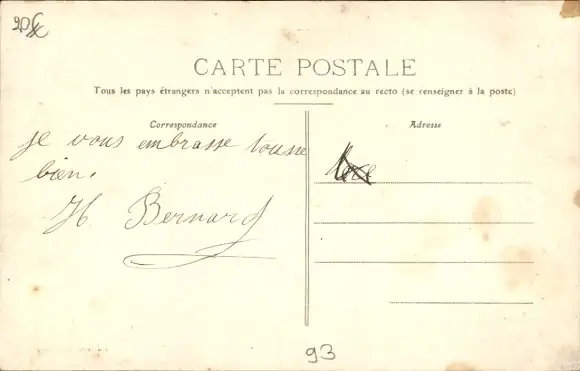 CARTE POSTALE
Tous les pays étrangers n'acceptent pas la correspondance au recto (se renseigner à la poste)
Correspondance
Adresse
je vous embrasse tousse
bien.
H Bernard
93